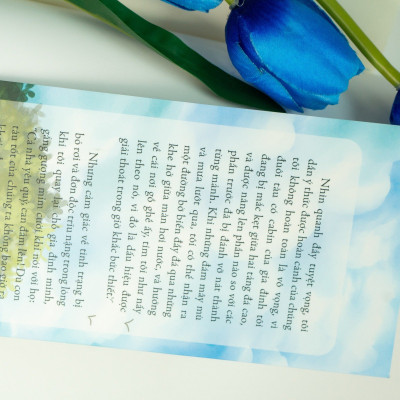 Nhìn quanh đầy tuyệt vọng, tôi
dần ý thức được hoàn cảnh của chúng
tôi không hoàn toàn là vô vọng, vì
đuôi tàu có cabin của gia đình tôi
đang bị mắc kẹt giữa hai tảng đá cao,
và được nâng lên phần nào so với các
phần trước đã bị đánh vỡ nát thành
từng mảnh. Khi những đám mây mù
và mưa lướt qua, tôi có thể nhận ra
một đường bờ biển đầy đá qua những
khe hở giữa màn hơi nước, và hướng
về cái nơi gồ ghề ấy, tim tôi như nảy
lên theo nó, vì đó là dấu hiệu được
giải thoát trong giờ khắc bức thiết.
Nhưng cảm giác về tình trạng bị
bỏ rơi và đơn độc trĩu nặng trong lòng
khi tôi quay lại chỗ gia đình mình,
gắng gượng mỉm cười khi nói với họ:
"Cả nhà yêu quý, can đảm lên! Dù con
tàu tốt của chúng ta không bao giờ ra